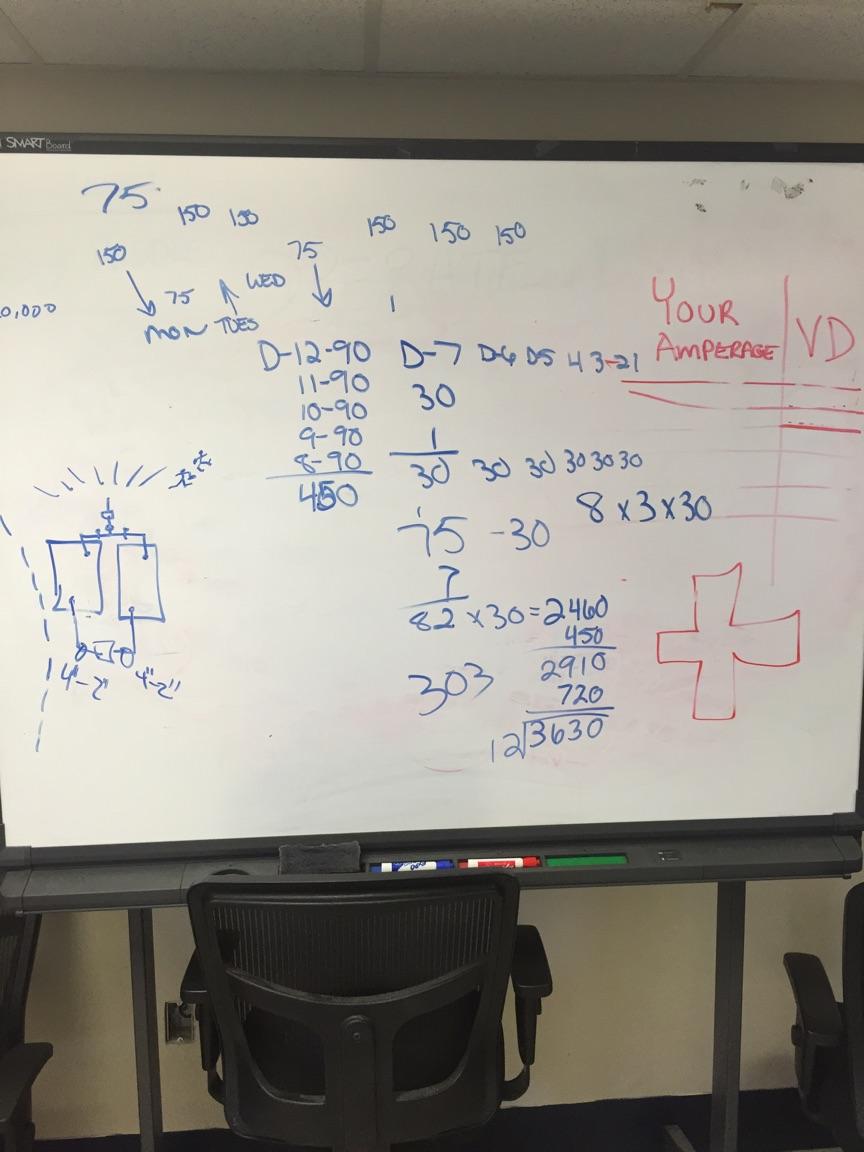 SMART Board
75
150 150
150 150 150
150
75
75
WED
0,000
MON TUES
1
YOUR
AMPERAGE
VD
D-12-90 D-7 D-6 D5 4 3-21
11-90
30
10-90
9-90
1
8-90
30 30 30 30 30 30
450
8 x 3 x 30
75 -30
7
82 x 30 = 2460
450
2910
303
720
12 3630
4"-2" 4"-2"